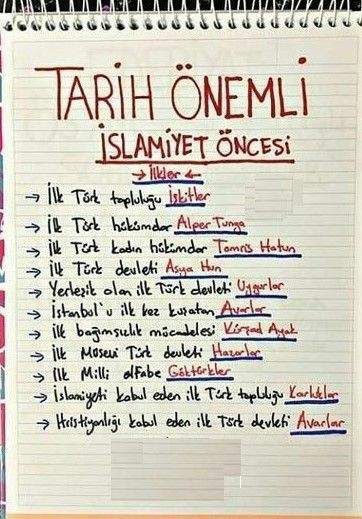 TARİH ÖNEMLİ
İSLAMİYET ÖNCESİ
→ İlkler ←
→ İlk Türk topluluğu İskitler
→ İlk Türk hükümdar Alper Tunga
→ İlk Türk kadın hükümdar Tomris Hatun
→ İlk Türk devleti Asya Hun
→ Yerleşik olan ilk Türk devleti Uygurlar
→ İstanbul'u ilk kez kuşatan Avarlar
→ İlk bağımsızlık mücadelesi Kürşad Ayak
→ İlk Musevi Türk devleti Hazarlar
→ İlk Milli alfabe Göktürkler
→ İslamiyeti kabul eden ilk Türk topluluğu Karluklar
→ Hristiyanlığı kabul eden ilk Türk devleti Avarlar